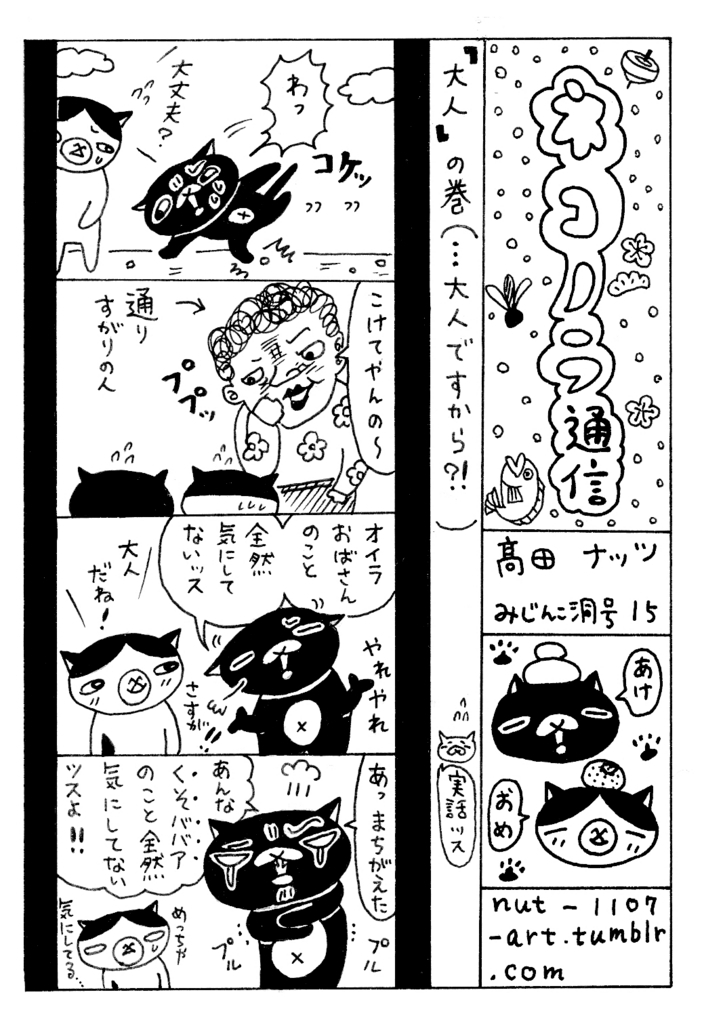 ネコノラ通信
髙田 ナッツ
みじんこ洞号15
あけ
おめ
nut-1107
-art.tumblr
.com
『大人』の巻(…大人ですから?!)
実話ッス
わっ
コケッ
大丈夫?
こけてやんの〜
ププッ
通り
すがりの人
オイラ
おばさん
のこと
全然
気にして
ないッス
やれやれ
さすが!!
大人
だね!
あっまちがえた
あんな
くそババア
のこと全然
気にしてない
ッスよ!!
プル
プル
めっちゃ
気にしてる…